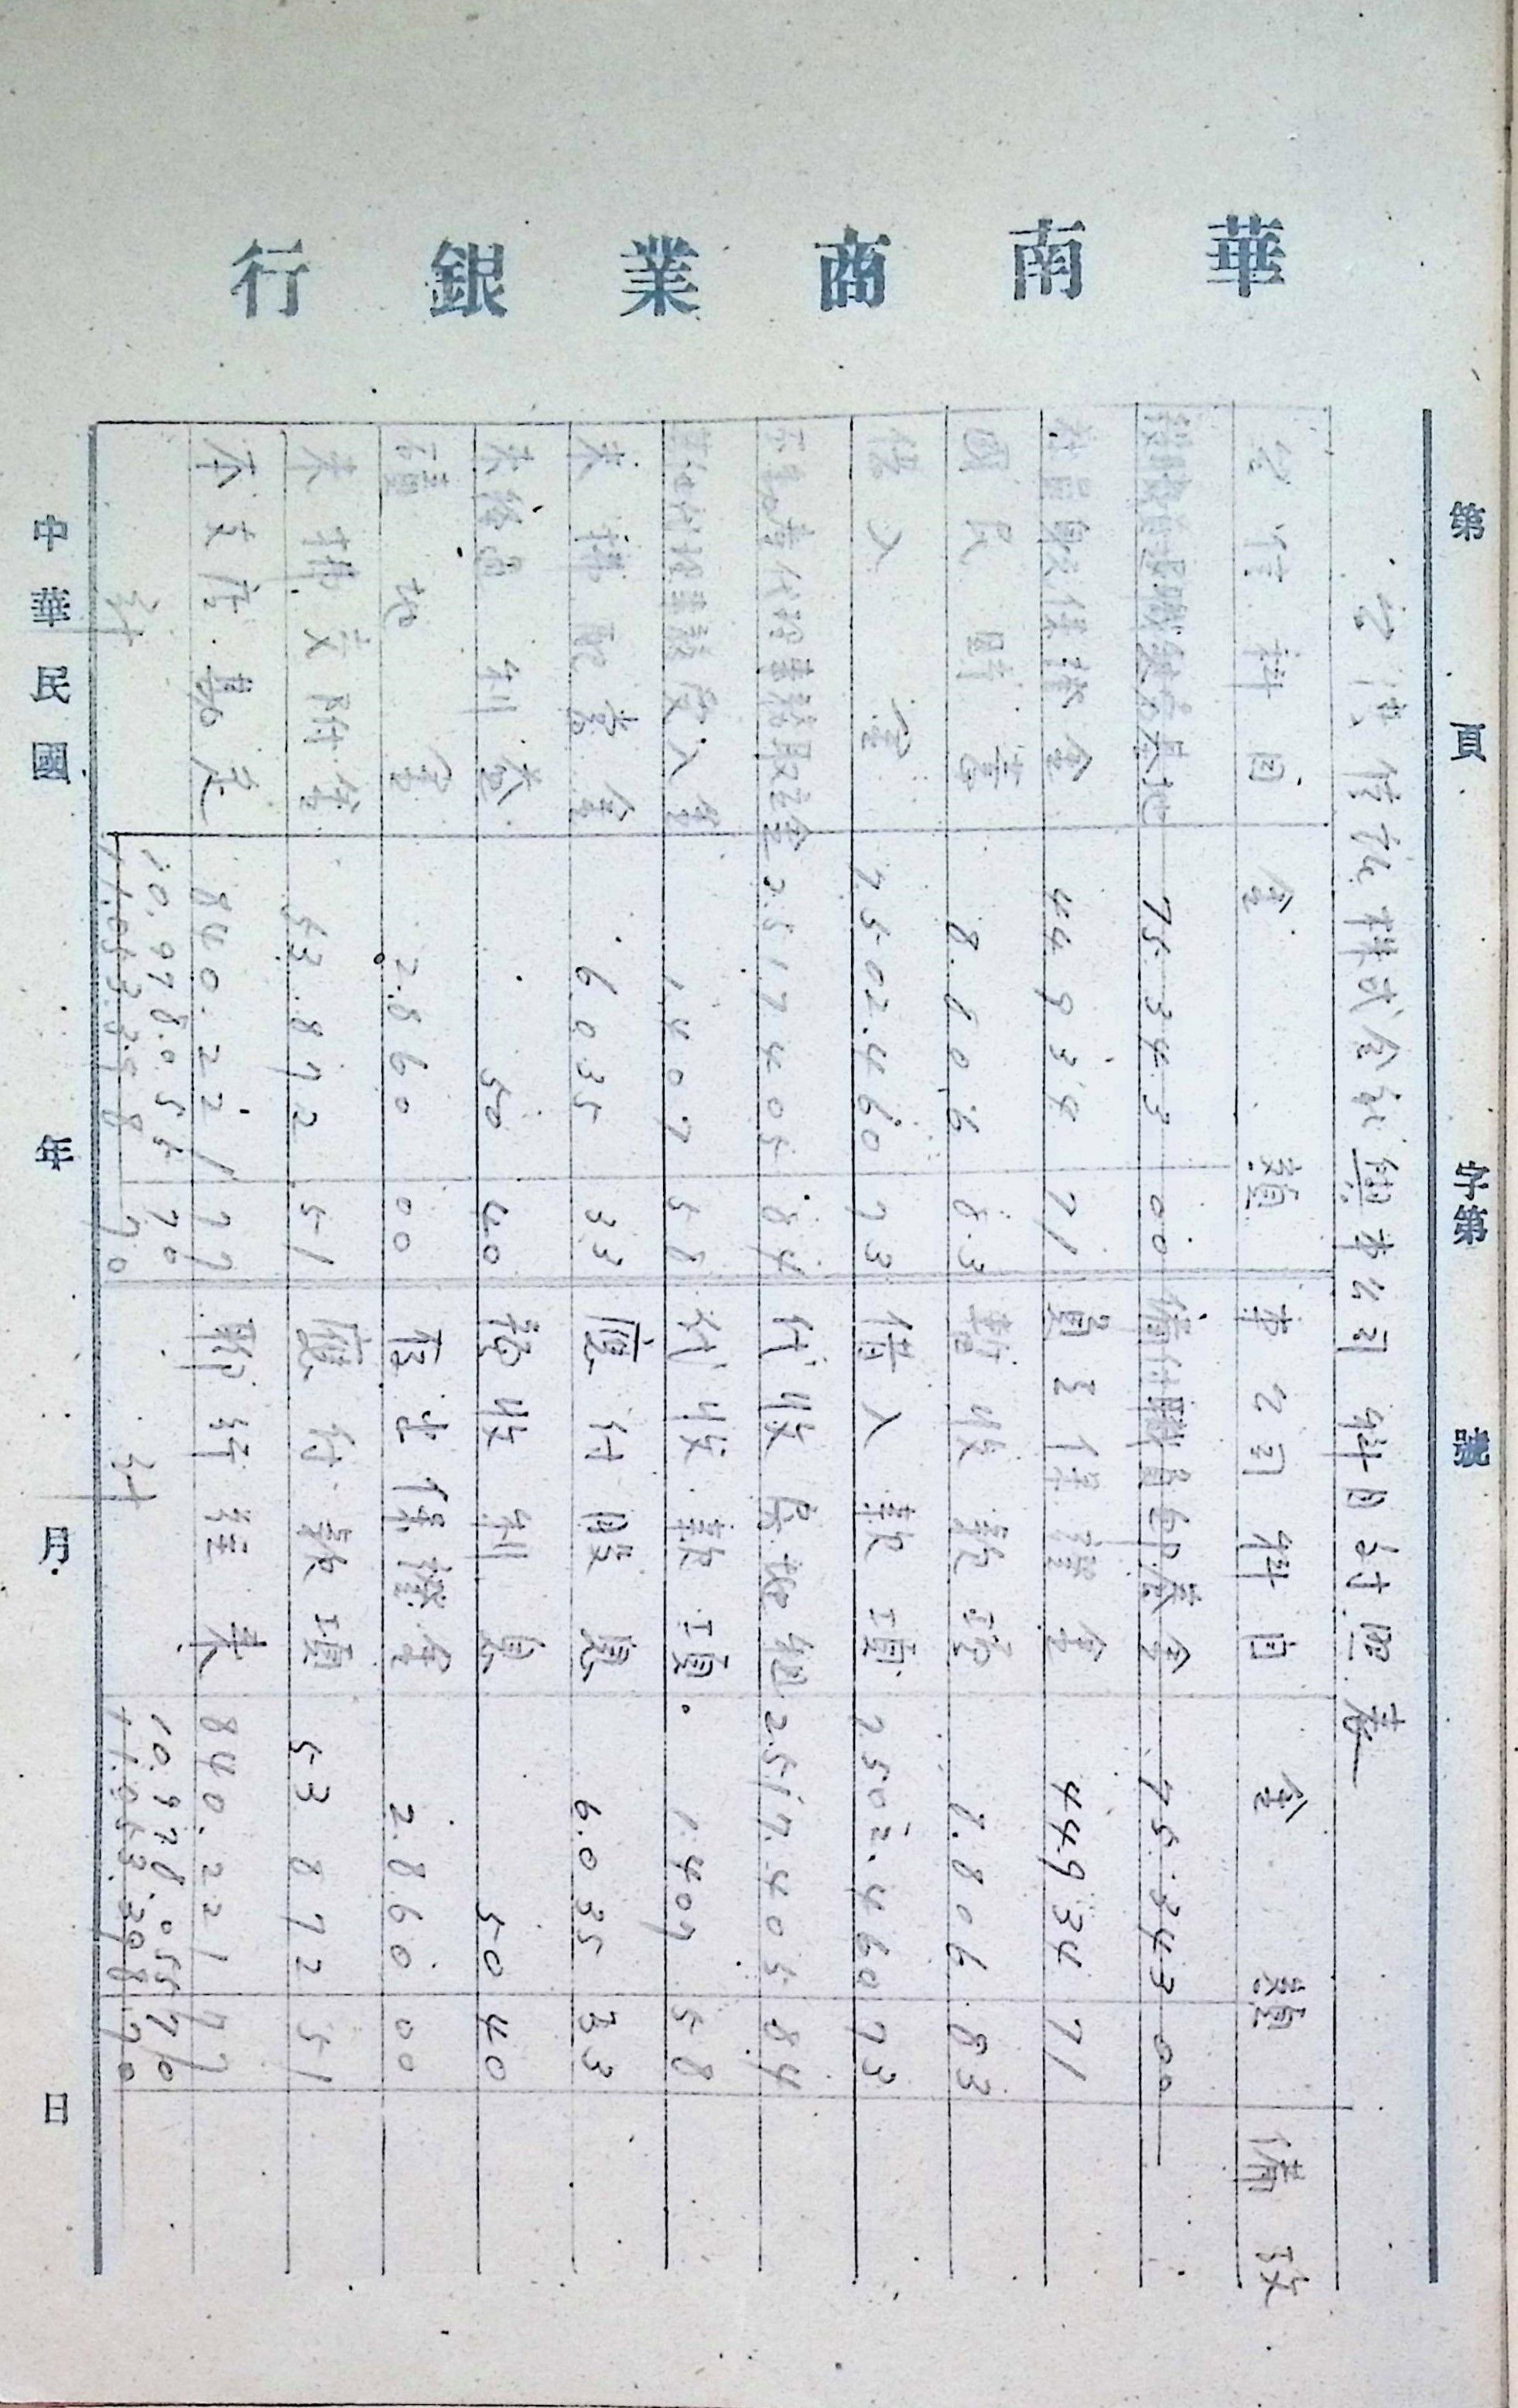 華南商業銀行
第 頁 字第 號
台灣信託株式会社與本公司科目對照表
台信科目 金 額 本公司科目 金 額 備 攷
75.343 00 備付職員卹養金 75.343 00
社員身分保證金 44.934 71 員工保證金 44.934 71
國民貯蓄 8.806 83 暫收款項 8.806 83
借入金 7.502.460 73 借入款項 7.502.460 73
2.517.405 84 代收房地租 2.517.405 84
1.407 58 代收款項 1.407 58
未拂配当金 6.035 33 應付股息 6.035 33
未經過利息 50 40 預收利息 50 40
2.860 00 存出保證金 2.860 00
未拂交附金 53.872 51 應付款項 53.872 51
本支店勘定 840.221 77 聯行往來 840.221 77
計 10.978.055 70 計 10.978.055 70
11.053.398 70 11.053.398 70
中華民國 年 月 日